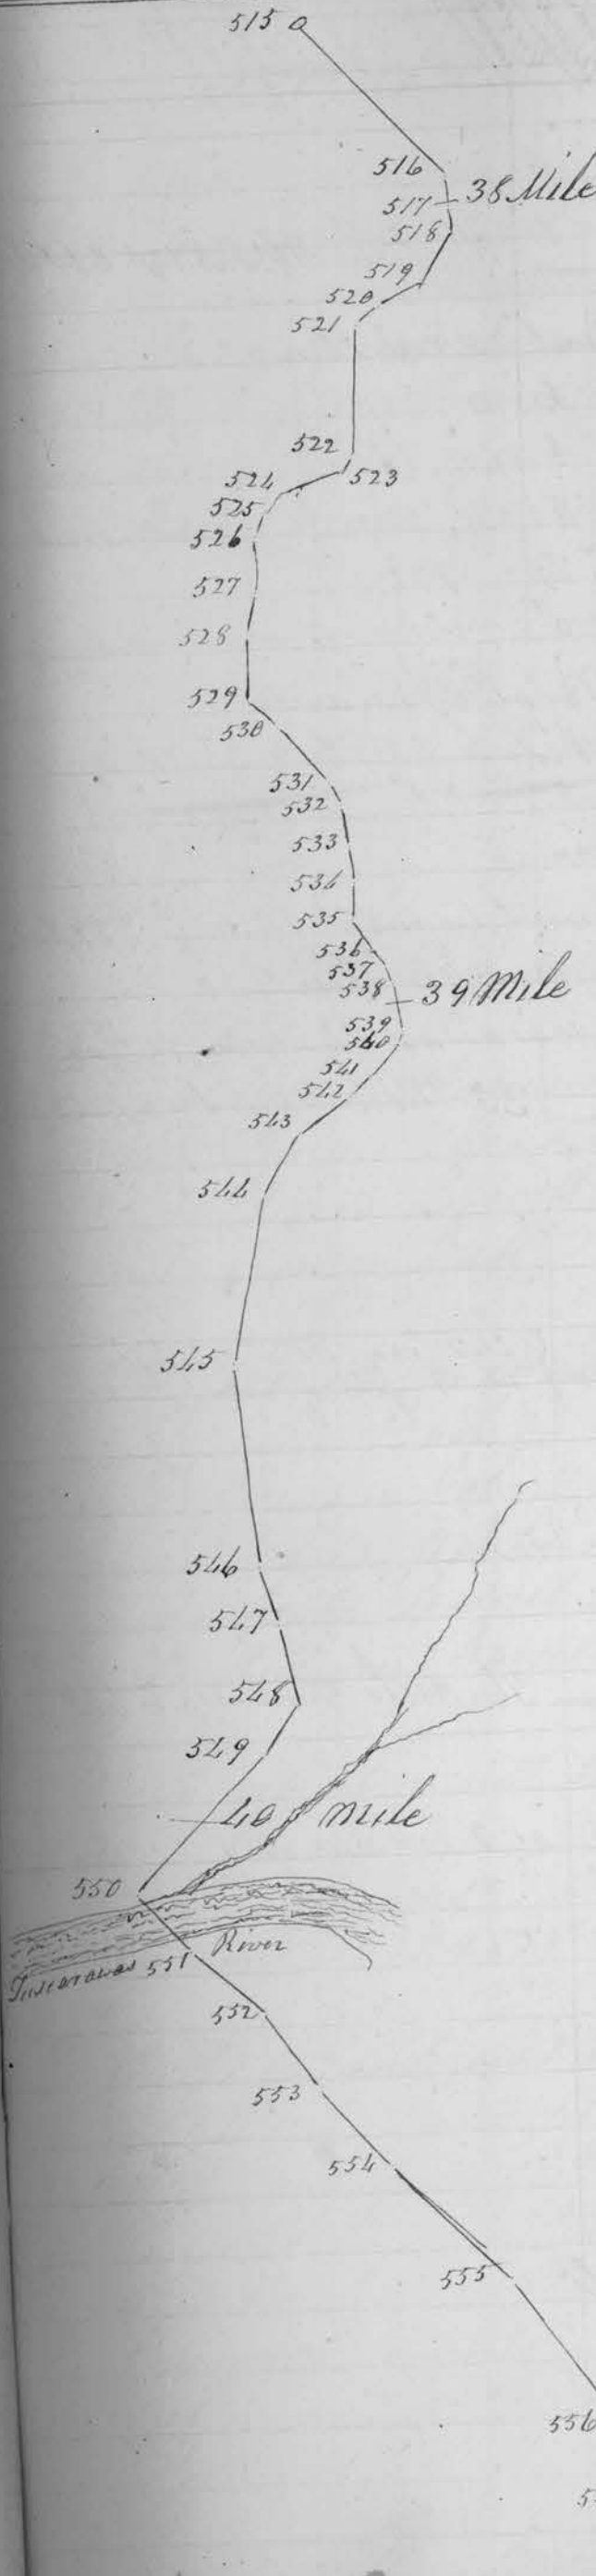 515
516
38 Mile
517
518
519
520
521
522
523
524
525
526
527
528
529
530
531
532
533
534
535
536
537
538
39 Mile
539
540
541
542
543
544
545
546
547
548
549
40 mile
550
River
Tuscarawas
551
552
553
554
555
556